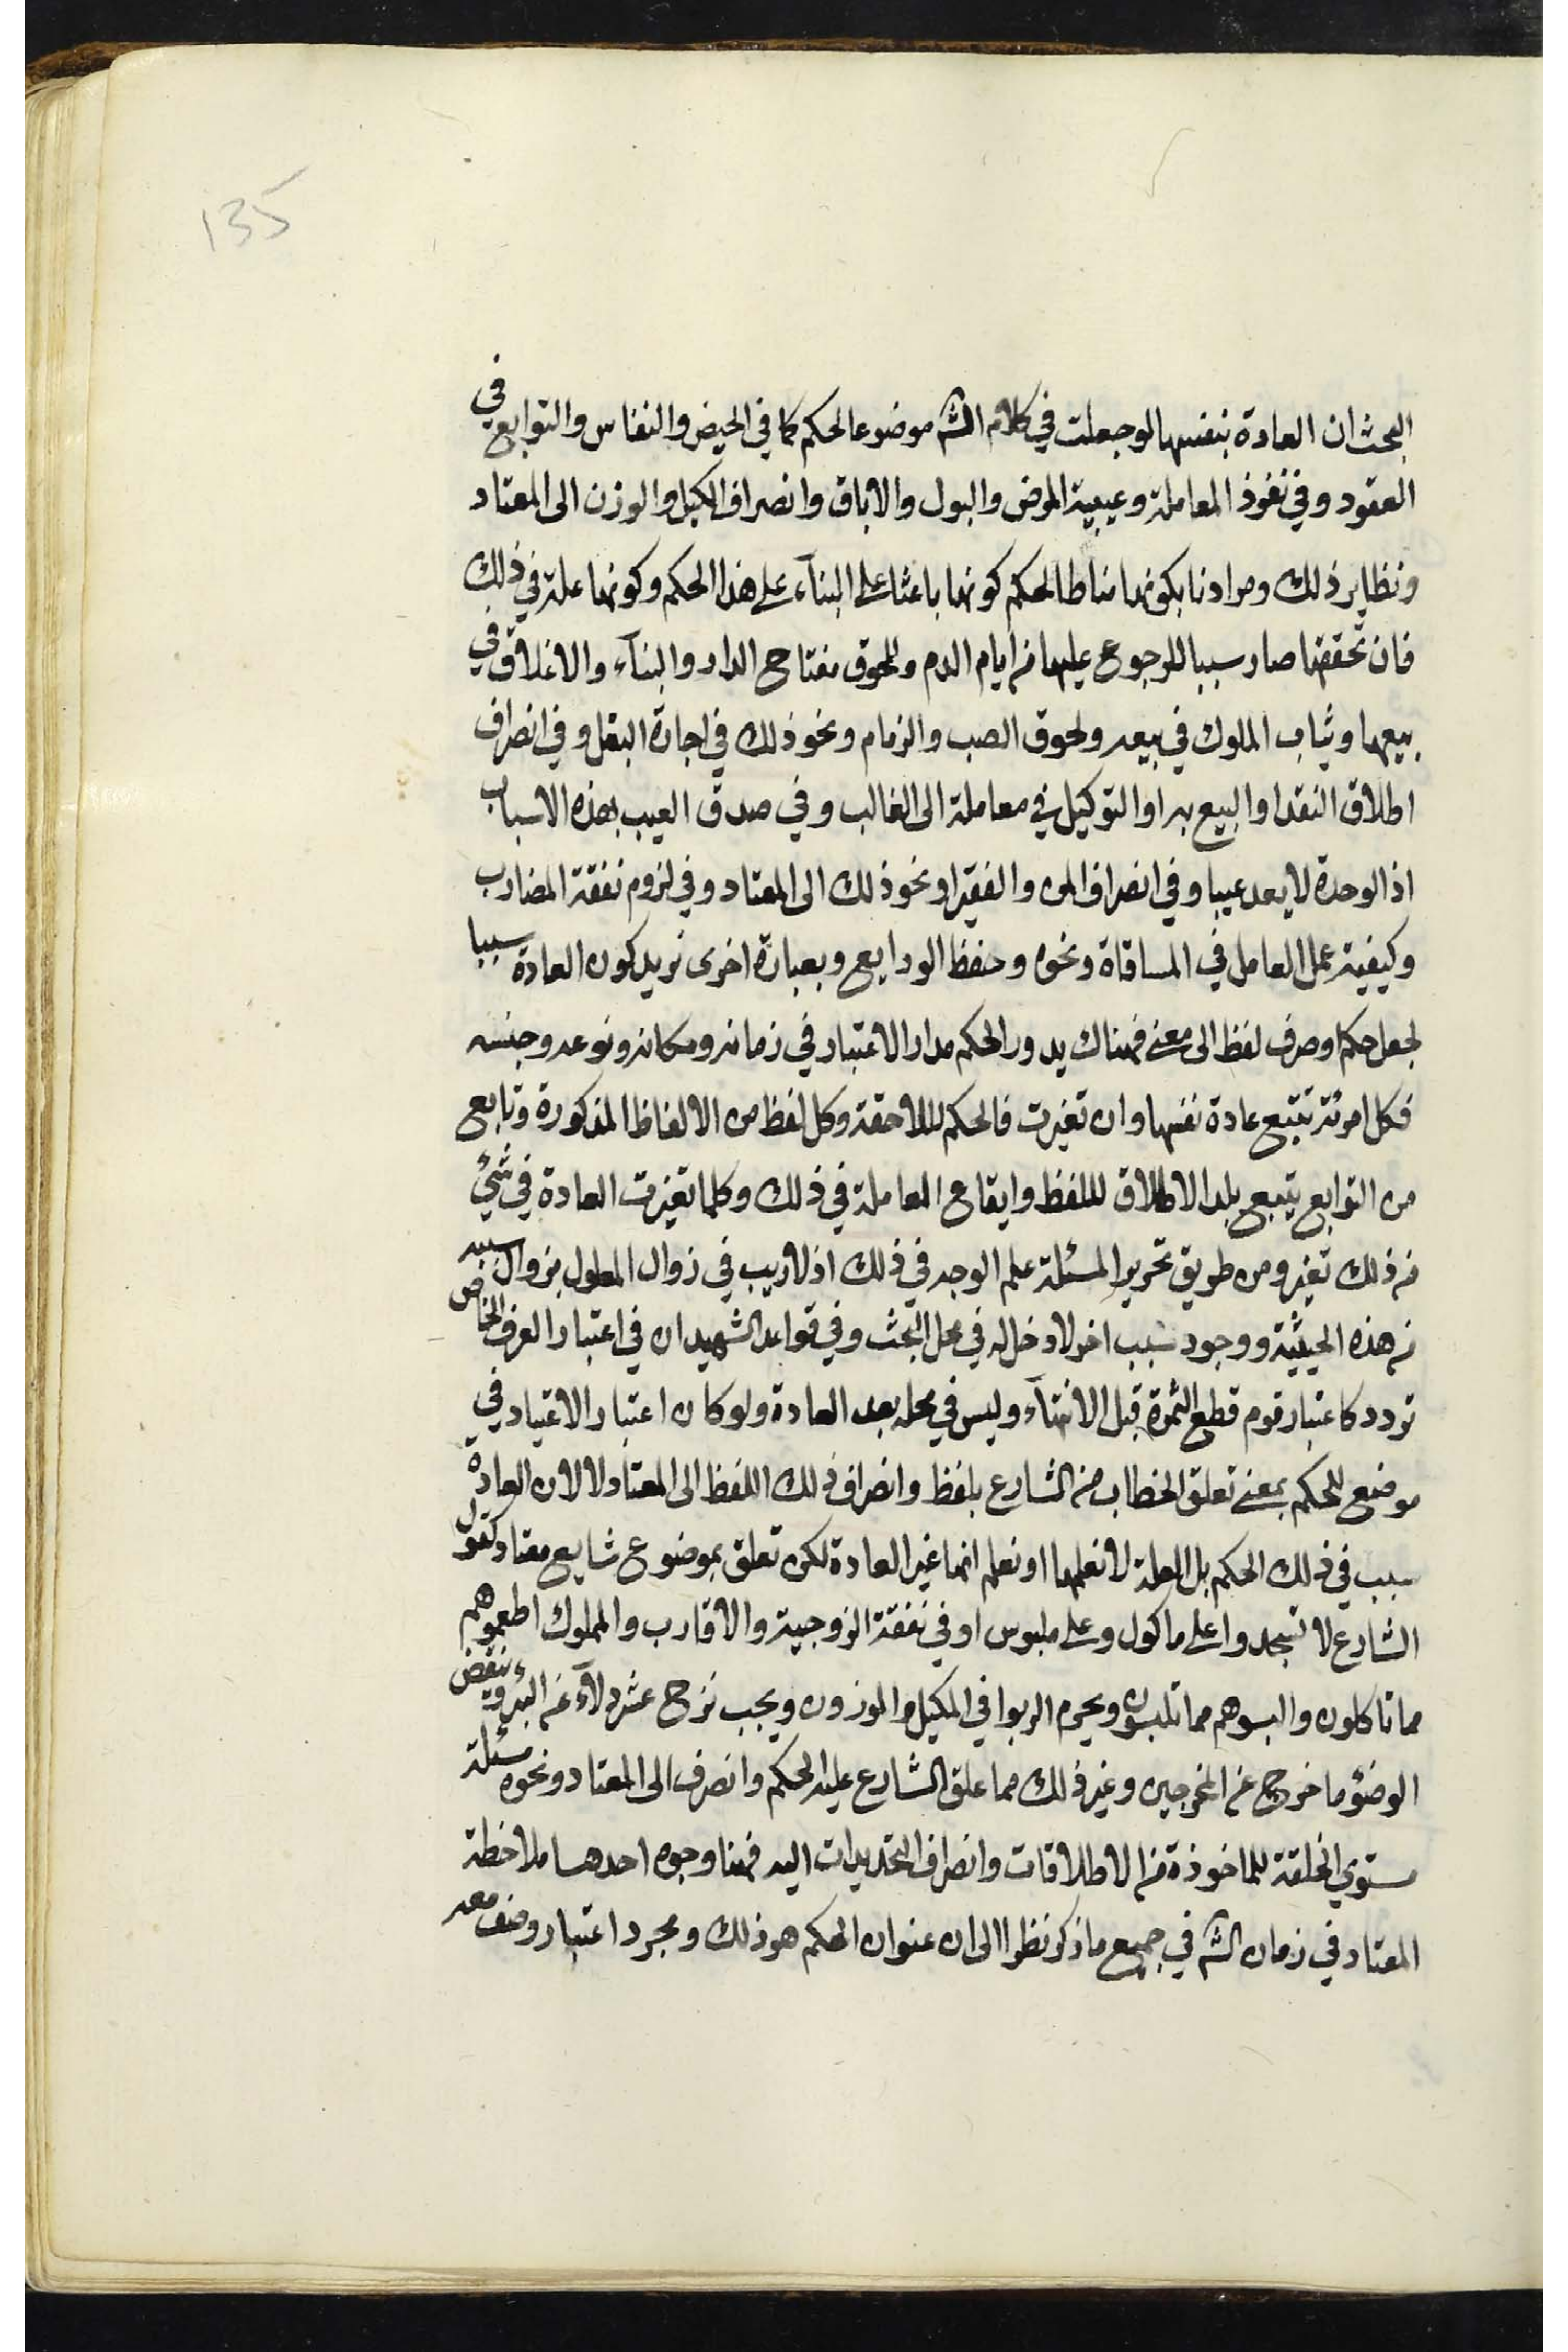 135
البحث ان العادة بنفسها لو جعلت في كلام الشه موضوعا لحكم كما في الحيض والنفاس والتوابع في
العقود وفي نفوذ المعاملة وعيبية المرض والبول والاباق وانصراف الكيل والوزن الى المعتاد
ونظاير ذلك ومرادنا بكونها مناطا لحكم كونها باعثا على البناء على هذا الحكم وكونها علة في ذلك
فان تحققها صار سببا للرجوع عليها من ايام الدم وللحوق مفتاح الدار والبناء والاغلاق في
بيعها وثياب الملوك في بيعه ولحوق الصب والزمام ونحو ذلك في اجارة البغل وفي انصراف
اطلاق النقد او البيع به او التوكيل في معاملة الى الغالب وفي صدق العيب بهذه الاسباب
اذ الوحدة لا يعد عيبا وفي انصراف المن والفقيز او نحو ذلك الى المعتاد وفي لزوم نفقة المضارب
وكيفية عمل العامل في المساقاة ونحوه وحفظ الودايع وبعبارة اخرى نريد كون العادة سببا
لجعل حكم او صرف لفظ الى معنى فهناك يدور الحكم مدار الاعتبار في زمانه ومكانه ونوعه وجنسه
فكل امرئة تتبع عادة نفسها وان تغيرت فالحكم لللاحقة وكل لفظ من الالفاظ المذكورة وتابع
من التوابع يتبع بلد الاطلاق لللفظ وايقاع المعاملة في ذلك وكلما تغيرت العادة في شئ
من ذلك تغير ومن طريق تحرير المسئلة علم الوجه في ذلك اذ لا ريب في زوال المعلول بزوال سببه
من هذه الحيثية ووجود سبب اخر لا دخل له في محل البحث وفي قواعد الشهيد ان في اعتبار العرف الخاص
تردد كاعتبار قوم قطع الثمرة قبل الانتهاء وليس في محله بعد العادة ولو كان اعتبار الاعتياد في
موضع للحكم بمعنى تعلق الخطاب من الشارع بلفظ وانصراف ذلك اللفظ الى المعتاد لا لان العادة
سبب في ذلك الحكم بل العلة لا نعلمها او نعلم انها غير العادة لكن تعلق بموضوع شايع معتاد كقول
الشارع لا تسجدوا على ماكول وعلى ملبوس او في نفقة الزوجية والاقارب والمملوك اطعموهم
مما تاكلون والبسوهم مما تلبسون ويحرم الربوا في المكيل والموزون ويجب نزح عشر دلاء من البئر وينقض
الوضوء ما خرج من المخرجين وغير ذلك مما علق الشارع عليه الحكم وانصرف الى المعتاد ونحوه مسئلة
مستوي الخلقة للماخوذة من الاطلاقات وانصراف التحديدات اليه فهنا وجوه احدها ملاحظة
المعتاد في زمان الشه في جميع ما ذكر نظرا الى ان عنوان الحكم هو ذلك ومجرد اعتبار وصف معه